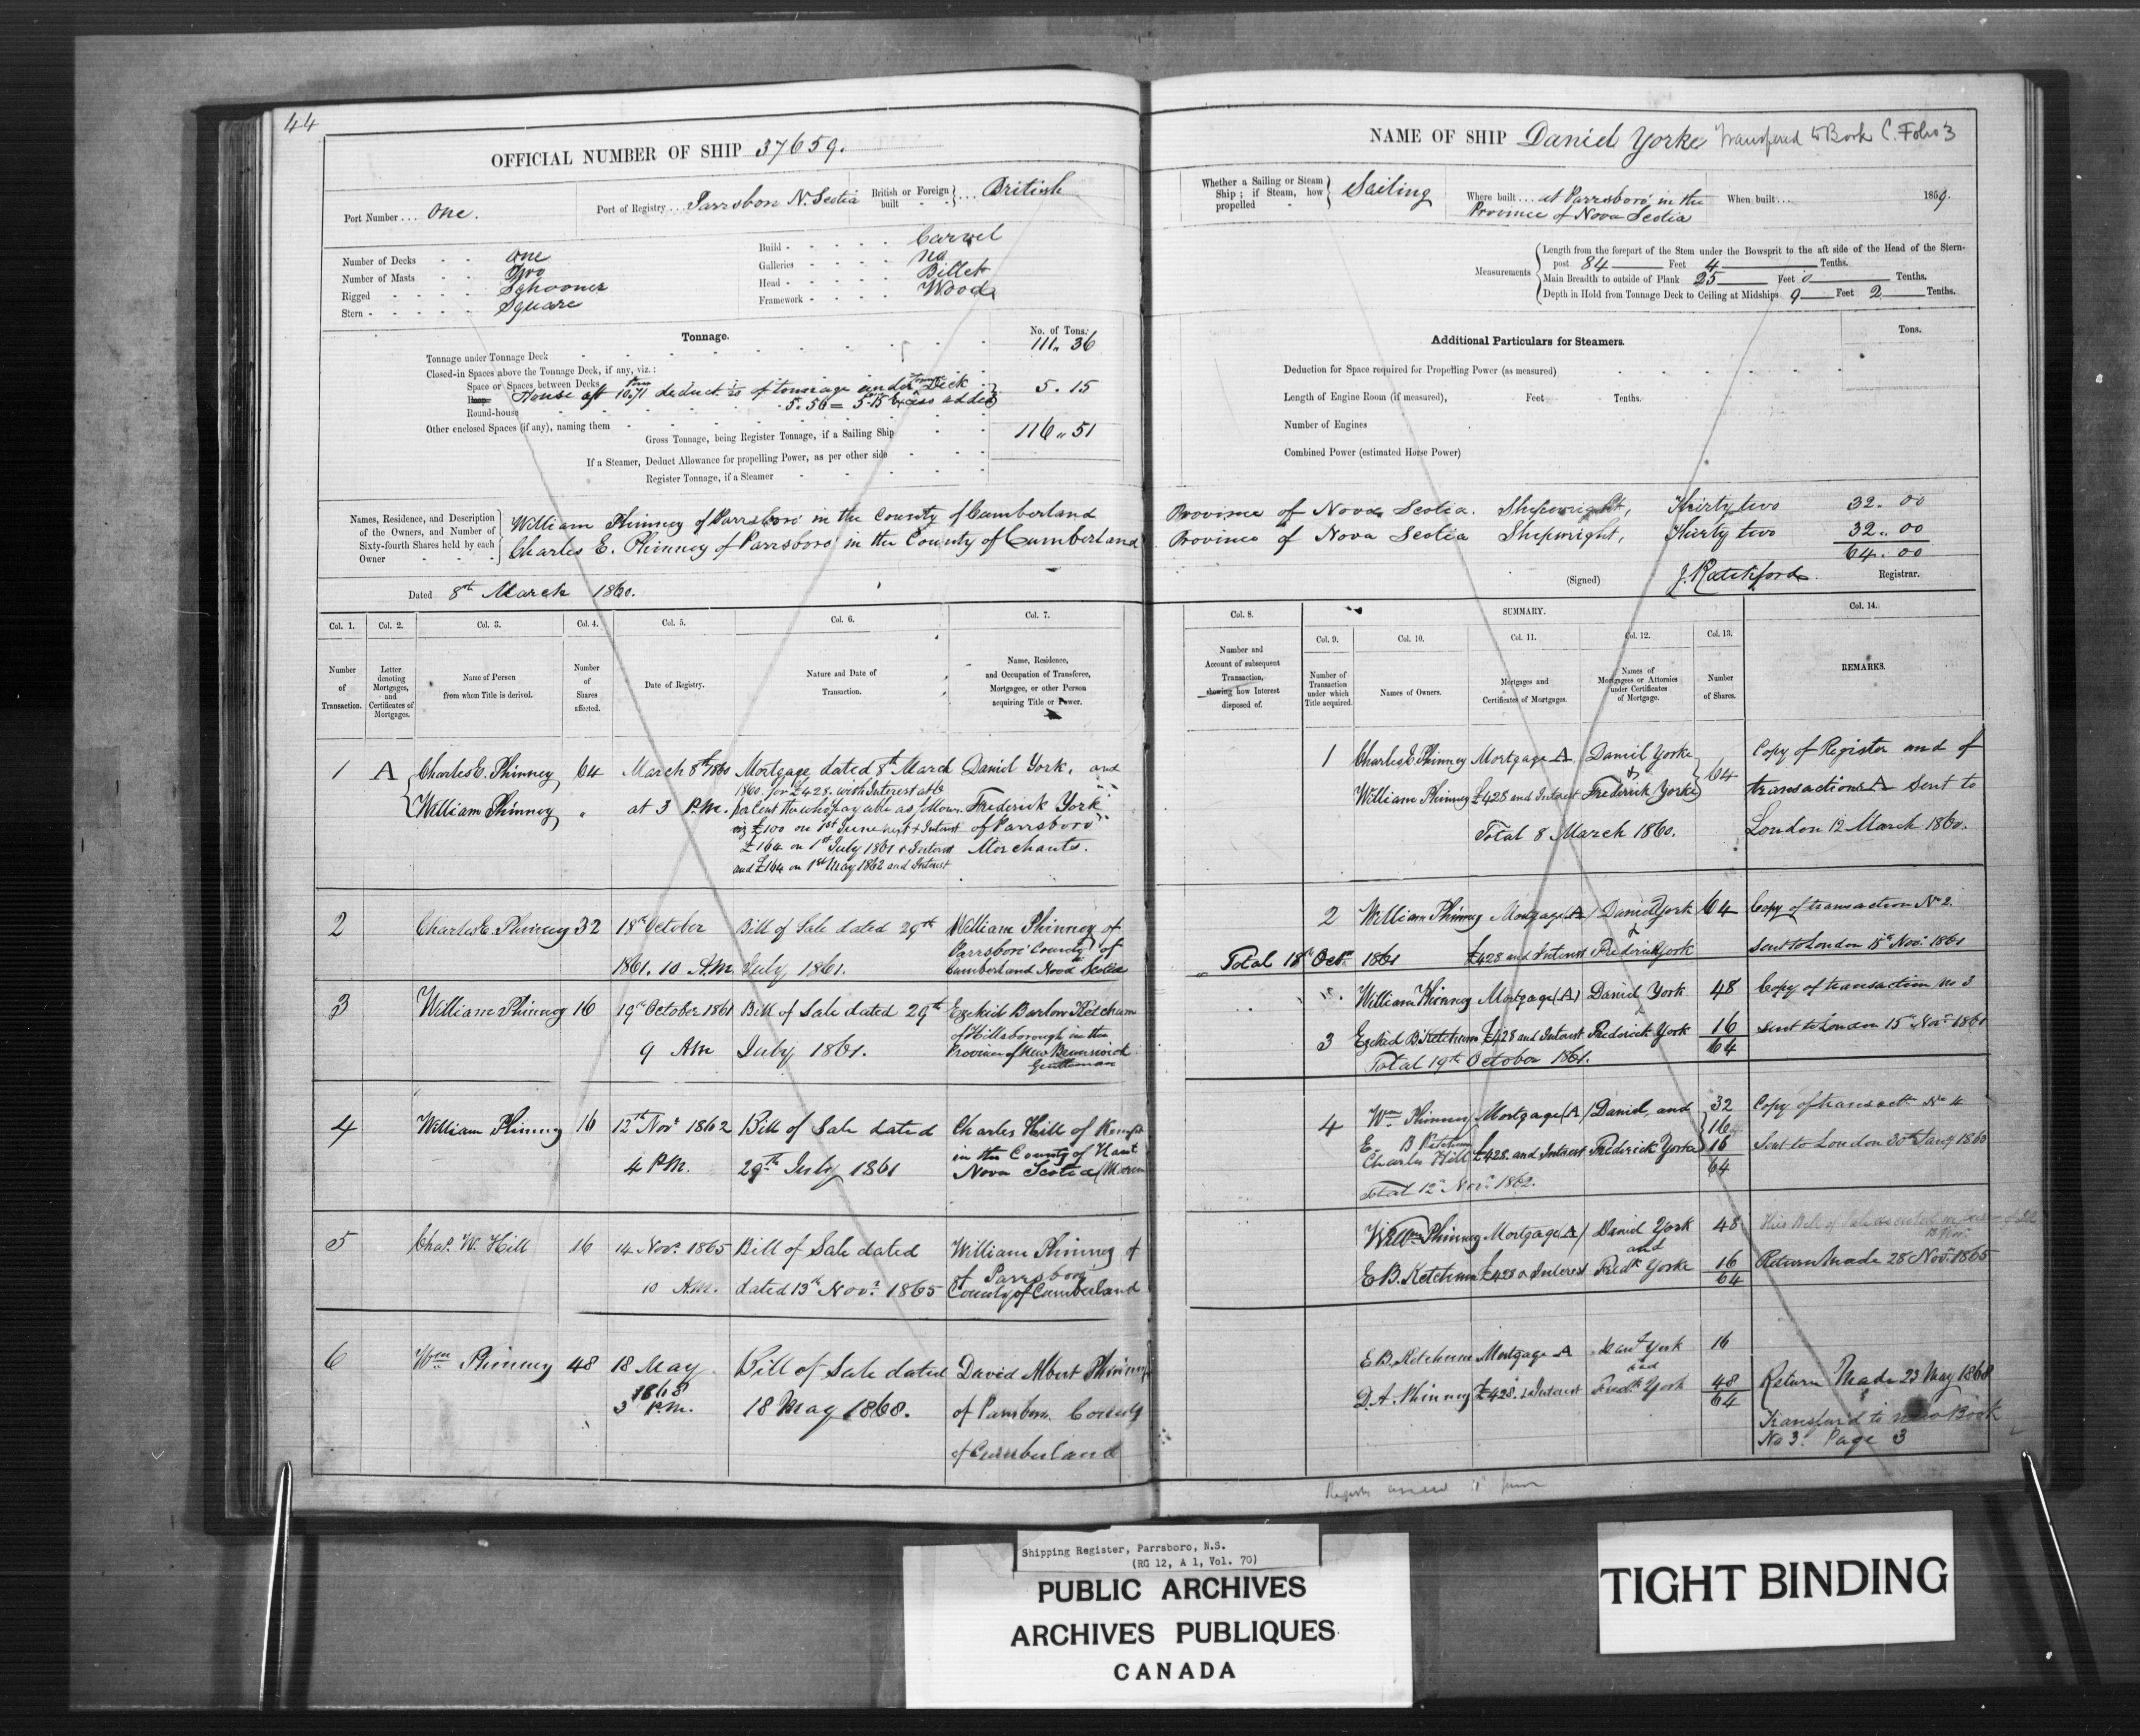 44
OFFICIAL NUMBER OF SHIP 37659.
Port Number ... One.
Port of Registry ... Parrsboro N. Scotia
British or Foreign built } ... British
Number of Decks - - One
Number of Masts - - Two
Rigged - - - - Schooner
Stern - - - - - Square
Build - - - - - Carvel
Galleries - - - - No
Head - - - - - Billet
Framework - - - - Wood
Tonnage.
No. of Tons.
Tonnage under Tonnage Deck 111.. 36
Closed-in Spaces above the Tonnage Deck, if any, viz.:
Space or Spaces between Decks
Poop House aft 10.71 deduct 1/20 of tonnage under Deck
5.56 = 5.15 Excess added } 5. 15
Round-house
Other enclosed Spaces (if any), naming them
Gross Tonnage, being Register Tonnage, if a Sailing Ship 116.. 51
If a Steamer, Deduct Allowance for propelling Power, as per other side
Register Tonnage, if a Steamer
Names, Residence, and Description of the Owners, and Number of Sixty-fourth Shares held by each Owner
William Phinney of Parrsboro in the County of Cumberland
Charles E. Phinney of Parrsboro in the County of Cumberland
Dated 8th March 1860.
Col. 1. Col. 2. Col. 3. Col. 4. Col. 5. Col. 6. Col. 7.
Number of Transaction.
Letter denoting Mortgages, and Certificates of Mortgages.
Name of Person from whom Title is derived.
Number of Shares affected.
Date of Registry.
Nature and Date of Transaction.
Name, Residence, and Occupation of Transferee, Mortgagee, or other Person acquiring Title or Power.
1 A Charles E. Phinney 64 March 8th 1860 Mortgage dated 8th March Daniel York, and
1860. for £428. with Interest at 6
William Phinney " at 3 P.M. per cent the whole payable as follows Frederick York
viz £100 on 1st June next & Interest of Parrsboro
£164 on 1st July 1861 & Interest Merchants.
and £164 on 1st May 1862 and Interest
2 Charles E. Phinney 32 18th October Bill of Sale dated 29th William Phinney of
Parrsboro County of
1861. 10 A.M. July 1861. Cumberland Nova Scotia
3 William Phinney 16 19th October 1861 Bill of Sale dated 29th Ezekiel Barlow Ketchum
of Hillsborough in the
9 AM July 1861. Province of New Brunswick
Gentleman
4 William Phinney 16 12th Novr 1862 Bill of Sale dated Charles Hill of
in the County of Hant
4 P.M. 29th July 1861 Nova Scotia
5 Chas. W. Hill 16 14 Novr. 1865 Bill of Sale dated William Phinney of
of Parrsboro
10 A.M. dated 13th Novr. 1865 County of Cumberland
6 Wm Phinney 48 18 May Bill of Sale dated David Albert Phinney
1868
3 P.M. 18 May 1868. of Parrsboro. County
of Cumberland
NAME OF SHIP Daniel Yorke Transfered to Book C. Folio 3
Whether a Sailing or Steam Ship; if Steam, how propelled } Sailing
Where built ... at Parrsboro in the
Province of Nova Scotia
When built ... 1859.
Measurements
Length from the forepart of the Stem under the Bowsprit to the aft side of the Head of the Stern-
post 84 Feet 4 Tenths.
Main Breadth to outside of Plank 25 Feet 0 Tenths.
Depth in Hold from Tonnage Deck to Ceiling at Midships 9 Feet 2 Tenths.
Additional Particulars for Steamers.
Tons.
Deduction for Space required for Propelling Power (as measured)
Length of Engine Room (if measured), Feet Tenths.
Number of Engines
Combined Power (estimated Horse Power)
Province of Nova Scotia. Shipwright, Thirty two 32. 00
Province of Nova Scotia Shipwright, Thirty two 32.. 00
64. 00
(Signed) J. Ratchford. Registrar.
Col. 8. SUMMARY. Col. 14.
Col. 9. Col. 10. Col. 11. Col. 12. Col. 13.
Number and Account of subsequent Transaction, showing how Interest disposed of.
Number of Transaction under which Title acquired.
Names of Owners.
Mortgages and Certificates of Mortgages.
Names of Mortgagees or Attornies under Certificates of Mortgage.
Number of Shares.
REMARKS.
1 Charles E. Phinney Mortgage A. Daniel Yorke Copy of Register and of
& } 64 transactions A Sent to
William Phinney £428 and Interest Frederick Yorke
Total 8 March 1860. London 12 March 1860.
2 William Phinney Mortgage (A) Daniel York 64 Copy of transaction No 2
&
" Total 18th Octr 1861 £428 and Interest Frederick York Sent to London 15 Novr. 1861
William Phinney Mortgage (A) Daniel York 48 Copy of transaction No 3
&
3 Ezekiel B. Ketchum £428 and Interest Frederick York 16 Sent to London 15 Novr. 1861
64
Total 19th October 1861.
4 Wm Phinney Mortgage (A) Daniel, and 32 Copy of transactn No 4
E. B Ketchum 16
Charles Hill £428. and Interest Frederick Yorke 16 Sent to London 30th Jany 1863
64
Total 12 Novr. 1862.
Willm Phinney Mortgage (A) Daniel York 48
and
E B. Ketchum £428 & Interest Fredk Yorke 16 Return Made 28 Novr. 1865
64
E B. Ketchum Mortgage A Danl York 16
and
D. A. Phinney £428. & Interest Fredk York 48 Return Made 23 May 1868
64
Transferd to new Book
No 3. Page 3
Shipping Register, Parrsboro, N.S.
(RG 12, A 1, Vol. 70)
PUBLIC ARCHIVES
ARCHIVES PUBLIQUES
CANADA
TIGHT BINDING